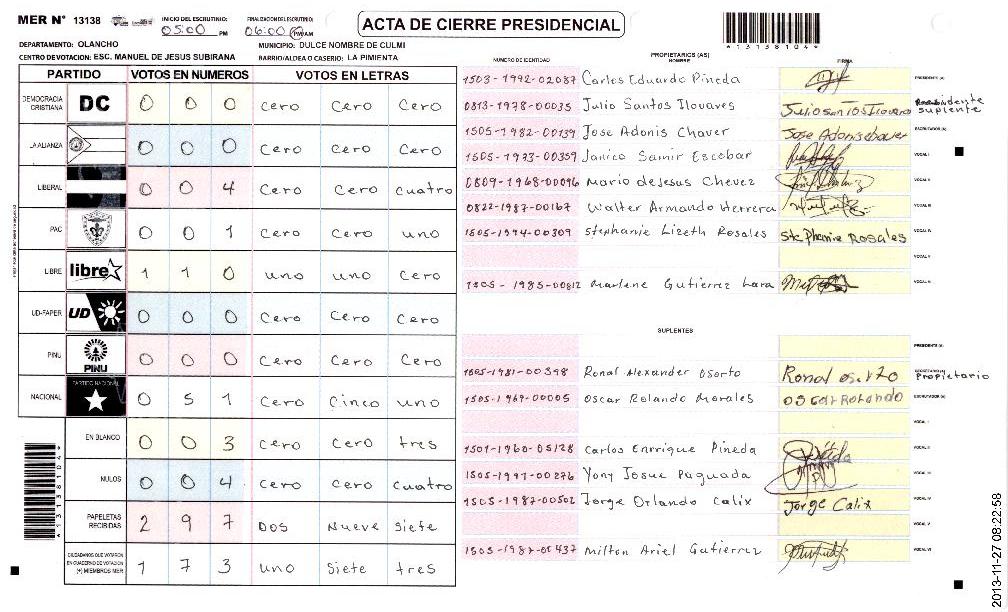 MER N° 13138 INICIO DEL ESCRUTINIO: 05:00 PM FINALIZACION DEL ESCRUTINIO: 06:00 PM/AM
ACTA DE CIERRE PRESIDENCIAL
*13138104*
DEPARTAMENTO: OLANCHO MUNICIPIO: DULCE NOMBRE DE CULMI
CENTRO DE VOTACION: ESC. MANUEL DE JESUS SUBIRANA BARRIO/ALDEA O CASERIO: LA PIMIENTA
PARTIDO VOTOS EN NUMEROS VOTOS EN LETRAS
DEMOCRACIA CRISTIANA DC 0 0 0 Cero Cero Cero
LA ALIANZA 0 0 0 Cero Cero Cero
LIBERAL 0 0 4 Cero Cero Cuatro
PAC 0 0 1 Cero Cero uno
LIBRE libre 1 1 0 uno uno Cero
UD-FAPER UD 0 0 0 Cero Cero Cero
PINU PINU 0 0 0 Cero Cero Cero
NACIONAL PARTIDO NACIONAL 0 5 1 Cero Cinco uno
EN BLANCO 0 0 3 Cero Cero tres
NULOS 0 0 4 Cero Cero Cuatro
PAPELETAS RECIBIDAS 2 9 7 Dos Nueve Siete
CIUDADANOS QUE VOTARON EN CUADERNO DE VOTACION (+) MIEMBROS MER 1 7 3 uno Siete tres
*13138104*
PROPIETARIOS (AS)
NUMERO DE IDENTIDAD NOMBRE FIRMA
1503-1992-02087 Carlos Eduardo Pineda PRESIDENTE (A)
0813-1978-00035 Julio Santos Ilovares suplente
1505-1982-00139 Jose Adonis Chaver Jose Adonis chaver ESCRUTADOR (A)
1505-1993-00359 Janico Samir Escobar VOCAL I
0809-1968-00096 Mario de Jesus Chevez VOCAL II
0822-1987-00167 Walter Armando Herrera VOCAL III
1505-1994-00309 Stephanie Lizeth Rosales Stephanie Rosales VOCAL IV
VOCAL V
1505-1985-00812 Marlene Gutierrez Lara VOCAL VI
SUPLENTES
PRESIDENTE (A)
1505-1981-00398 Ronal Alexander Osorto Ronal Osorto SECRETARIO (A) Propietario
1505-1969-00005 Oscar Rolando Morales Oscar Rolando ESCRUTADOR (A)
VOCAL I
1501-1960-05128 Carlos Enrrique Pineda VOCAL II
1505-1991-00276 Yony Josue Paguada VOCAL III
1505-1987-00502 Jorge Orlando Calix Jorge Calix VOCAL IV
VOCAL V
1505-1987-00437 Milton Ariel Gutierrez VOCAL VI
2013-11-27 08:22:58